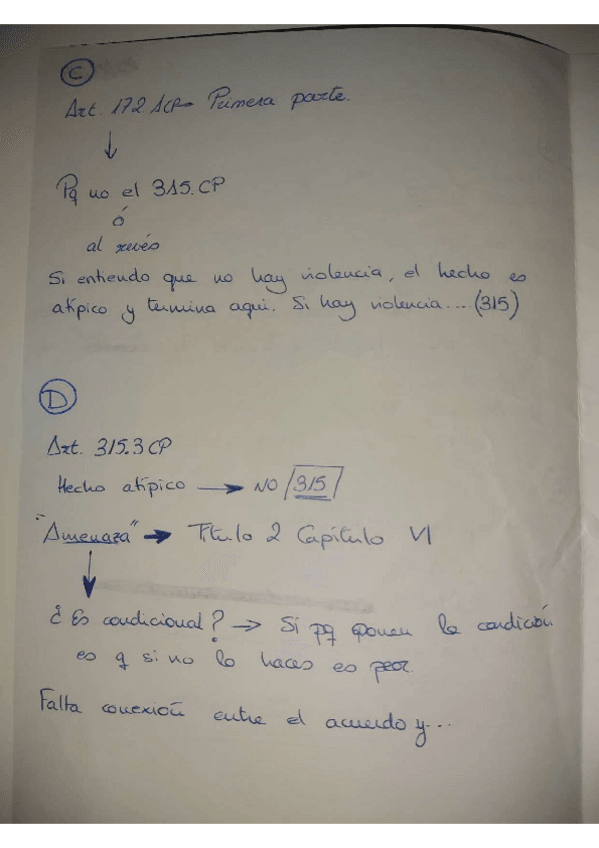 C
Art. 172.1CP→ Primera parte.
↓
Pq no el 315.CP
ó
al revés
Si entiendo que no hay violencia, el hecho es
atípico y termina aquí. Si hay violencia... (315)
D
Art. 315.3 CP
Hecho atípico → NO 315
"Amenaza" → Título 2 Capítulo VI
↓
¿Es condicional? → Sí pq ponen la condición
es q si no lo haces es peor.
Falta conexión entre el acuerdo y...